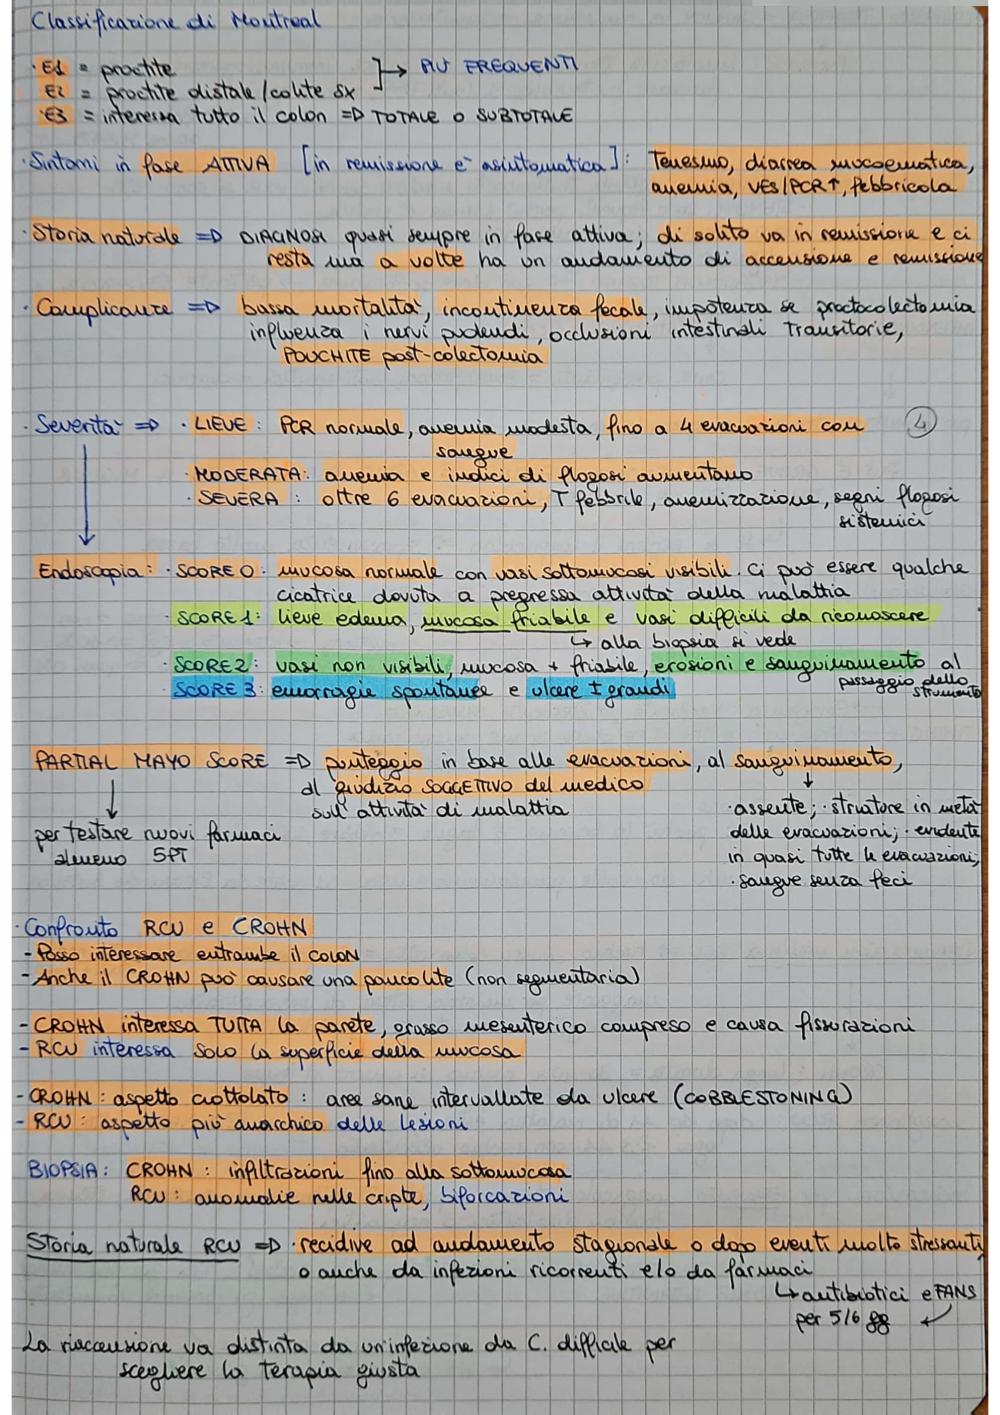 Classificazione di Montreal
· E1 = proctite
→ PIÙ FREQUENTI
E2 = proctite distale/colite sx
· E3 = interessa tutto il colon => TOTALE O SUBTOTALE
· Sintomi in fase ATTIVA [in remissione è asintomatica]: Tenesmo, diarrea mucoematica,
anemia, VES/PCR↑, febbricola
· Storia naturale => DIAGNOSI quasi sempre in fase attiva; di solito va in remissione e ci
resta ma a volte ha un andamento di accensione e remissione
· Complicanze => bassa mortalità, incontinenza fecale, impotenza se proctocolectomia
influenza i nervi pudendi, occlusioni intestinali transitorie,
POUCHITE post-colectomia
· Severità => · LIEVE: PCR normale, anemia modesta, fino a 4 evacuazioni con
sangue
4
· MODERATA: anemia e indici di flogosi aumentano
· SEVERA: oltre 6 evacuazioni, T febbrile, anemizzazione, segni flogosi
sistemici
Endoscopia: · SCORE 0: mucosa normale con vasi sottomucosi visibili. Ci può essere qualche
cicatrice dovuta a pregressa attività della malattia
· SCORE 1: lieve edema, mucosa friabile e vasi difficili da riconoscere
↳ alla biopsia si vede
· SCORE 2: vasi non visibili, mucosa + friabile, erosioni e sanguinamento al
passaggio dello
strumento
· SCORE 3: emorragie spontanee e ulcere ± grandi
PARTIAL MAYO SCORE => punteggio in base alle evacuazioni, al sanguinamento,
al giudizio SOGGETTIVO del medico
sull'attività di malattia
per testare nuovi farmaci
almeno 5PT
· assente; · striature in metà
delle evacuazioni; · evidente
in quasi tutte le evacuazioni;
· sangue senza feci
· Confronto RCU e CROHN
- Posso interessare entrambe il COLON
- Anche il CROHN può causare una pancolite (non segmentaria)
- CROHN interessa TUTTA la parete, grasso mesenterico compreso e causa fissurazioni
- RCU interessa solo la superficie della mucosa
- CROHN: aspetto ciottolato: aree sane intervallate da ulcere (COBBLESTONING)
- RCU: aspetto più anarchico delle lesioni
BIOPSIA: CROHN: infiltrazioni fino alla sottomucosa
RCU: anomalie nelle cripte, biforcazioni
Storia naturale RCU => · recidive ad andamento stagionale o dopo eventi molto stressanti
o anche da infezioni ricorrenti e/o da farmaci
↳ antibiotici e FANS
per 5/6 gg
La riaccensione va distinta da un'infezione da C. difficile per
scegliere la terapia giusta